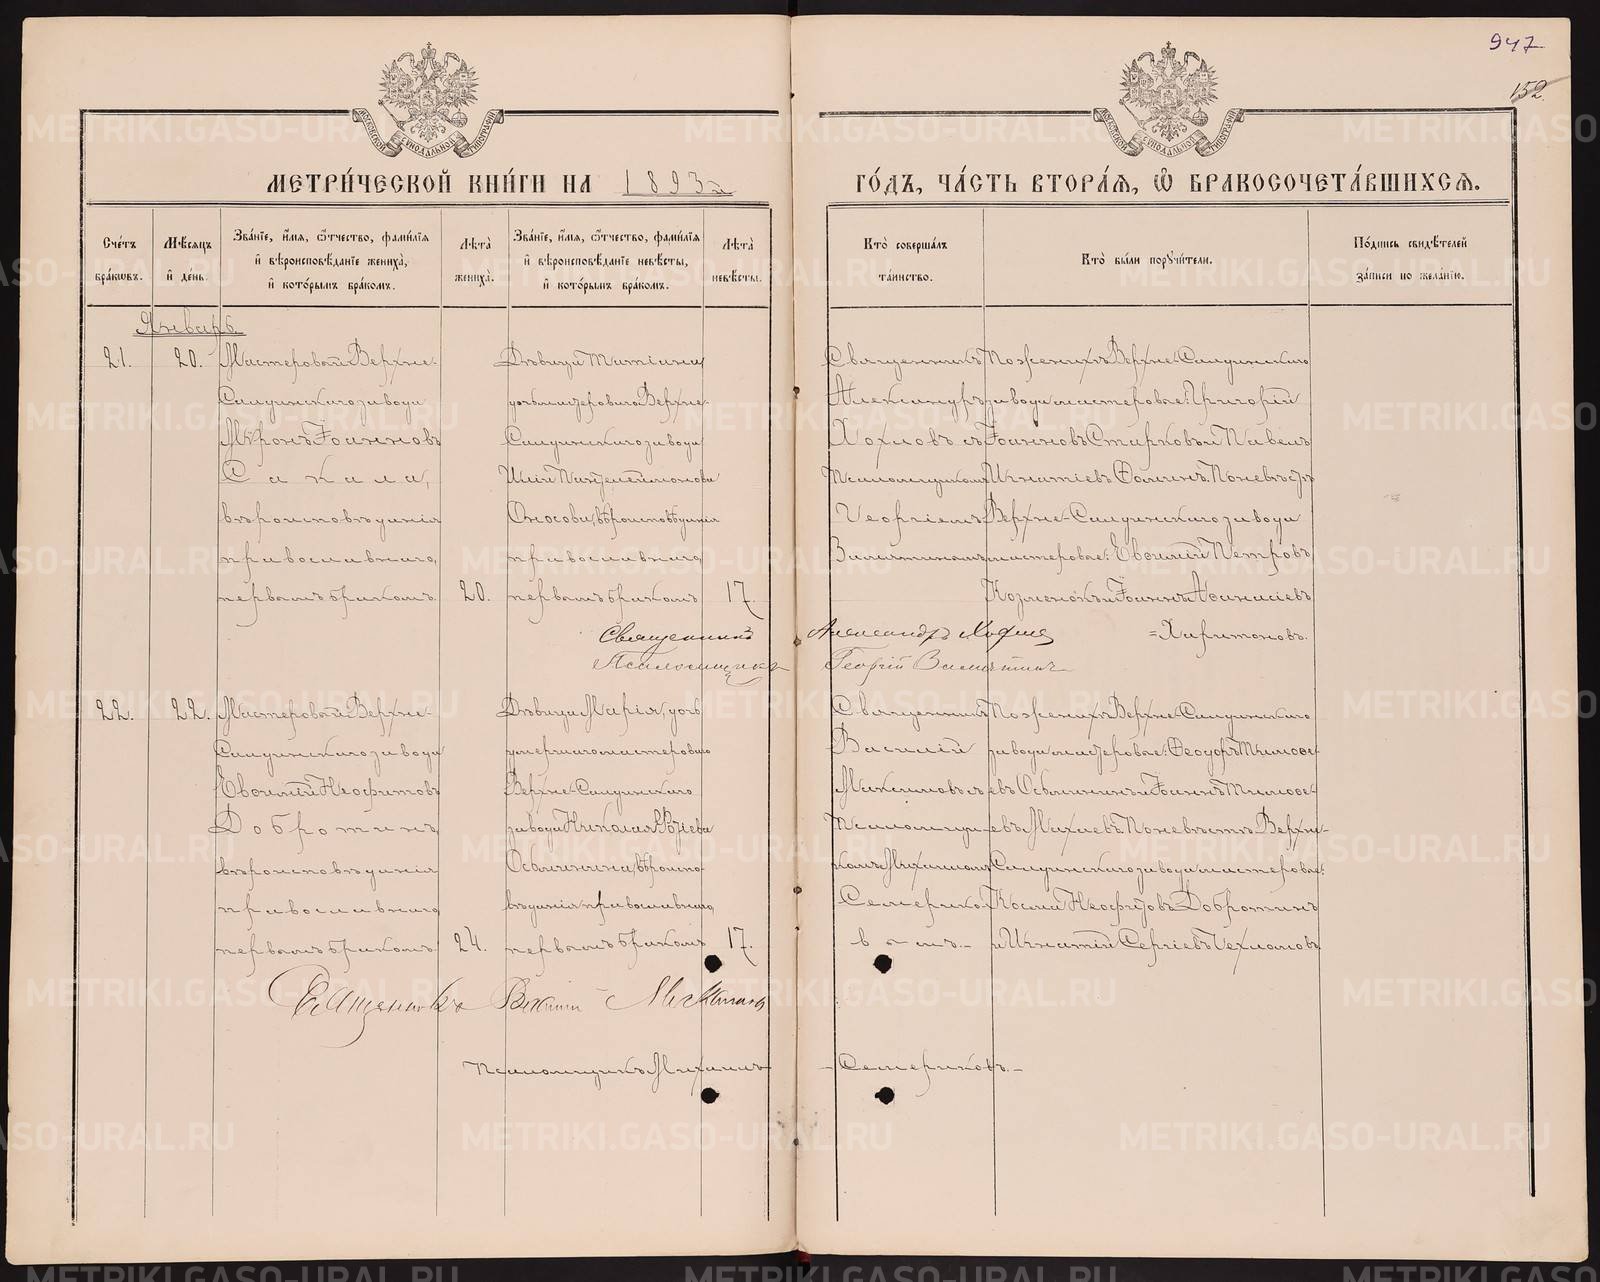 947
152.
МЕТРИ́ЧЕСКОЙ КНИ́ГИ НА 1893й
ГО́ДЪ, ЧА́СТЬ ВТОРА́Я, Ѽ БРАКОСОЧЕТА́ВШИХСЯ.
Сче́тъ бра́кѡвъ.
Мѣ́сяцъ и де́нь.
Зва́нїе, и́мя, ѻ́тчество, фами́лїя и вѣроисповѣ́данїе жениха̀, и кото́рымъ бра́комъ.
Лѣ́та жениха̀.
Зва́нїе, и́мя, ѻ́тчество, фами́лїя и вѣроисповѣ́данїе невѣ́сты, и кото́рымъ бра́комъ.
Лѣ́та невѣ́сты.
Кто̀ соверша́лъ та́инство.
Кто̀ бы́ли порꙋчи́тели.
По́дпись свидѣ́телей за́писи по жела́нїю.
Январь.
21.
20.
Мастеровой Верхне-
Салдинскаго завода
Мѵронъ Іоанновъ
Сакала,
вѣроисповѣданія
православнаго,
первымъ бракомъ.
20.
Дѣвица Татіана
дочь мастероваго Верхне-
Салдинскаго завода
Пантелеимонова
Оносова, вѣроисповѣданія
православнаго,
первымъ бракомъ
17.
Священникъ
Александръ
Хохловъ съ
Псаломщикомъ
Георгіемъ
Замятинымъ
По женихѣ Верхне-Салдинскаго
завода мастеровые: Григорій
Іоанновъ Старковъ и Павелъ
Игнатіевъ Ѳоминъ. По невѣстѣ
Верхне-Салдинскаго завода
мастеровые: Евѳимій Петровъ
и Іоаннъ Аѳанасіевъ
Харитоновъ.
Священникъ Александръ Хохловъ
Псаломщикъ Георгій Замятинъ
22.
22.
Мастеровой Верхне-
Салдинскаго завода
Евѳимій Неофитовъ
Добротинъ,
вѣроисповѣданія
православнаго,
первымъ бракомъ
24.
Дѣвица Марія, дочь
умершаго мастероваго
Верхне-Салдинскаго
завода Николая
вѣроиспо-
вѣданія православнаго,
первымъ бракомъ
17.
Священникъ
Василій
Максимовъ съ
Псаломщи-
комъ Михаиломъ
Семерико-
вымъ.
По женихѣ Верхне-Салдинскаго
завода мастеровые: Ѳеодоръ Тимоѳе-
евъ и Іоаннъ Тимоѳе-
евъ По невѣстѣ Верхне-
Салдинскаго завода мастеровые:
Косма Неофитовъ Добротинъ
и Игнатій Сергіевъ
Священникъ Василій Максимовъ
Псаломщикъ Михаилъ Семериковъ.